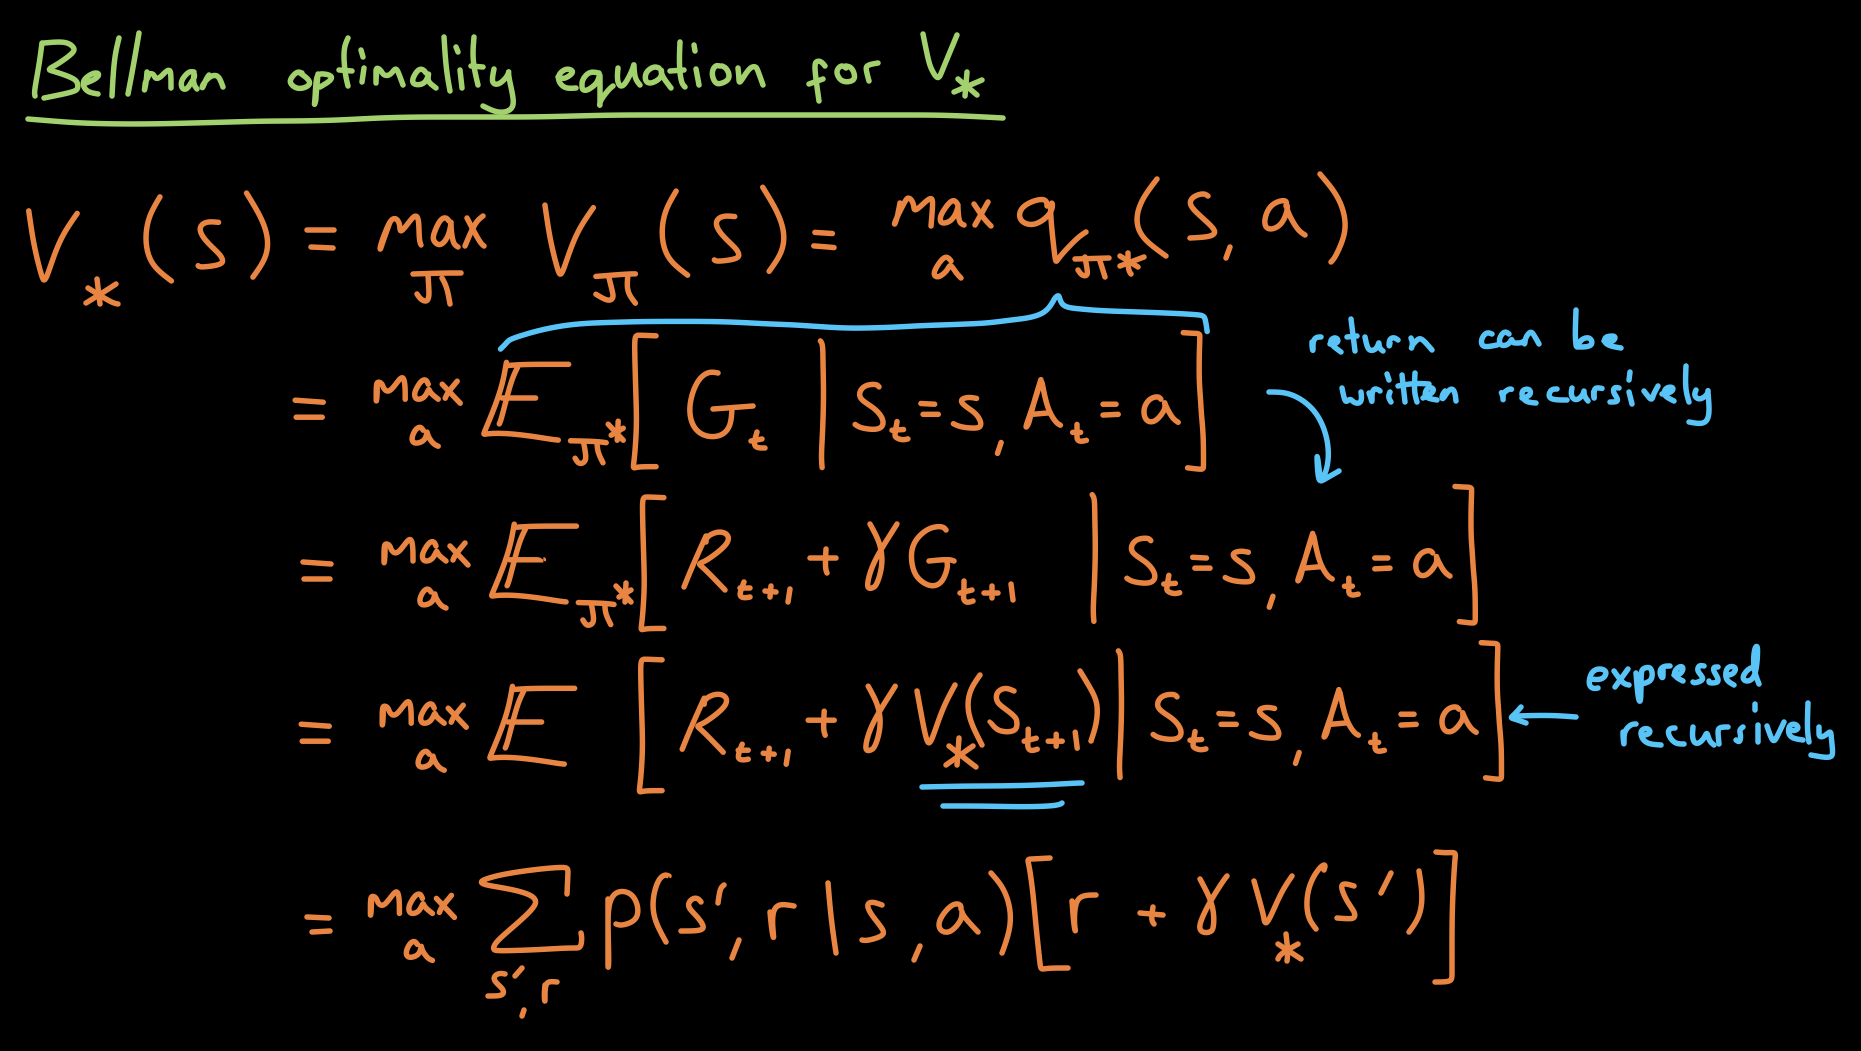 Bellman optimality equation for V_*
V_*(s) = max_π V_π(s) = max_a q_π*(s, a)
= max_a E_π*[G_t | S_t = s, A_t = a]
return can be
written recursively
= max_a E_π*[R_t+1 + γG_t+1 | S_t = s, A_t = a]
= max_a E[R_t+1 + γV_*(S_t+1) | S_t = s, A_t = a]
expressed
recursively
= max_a Σ_s',r p(s', r | s, a)[r + γV_*(s')]